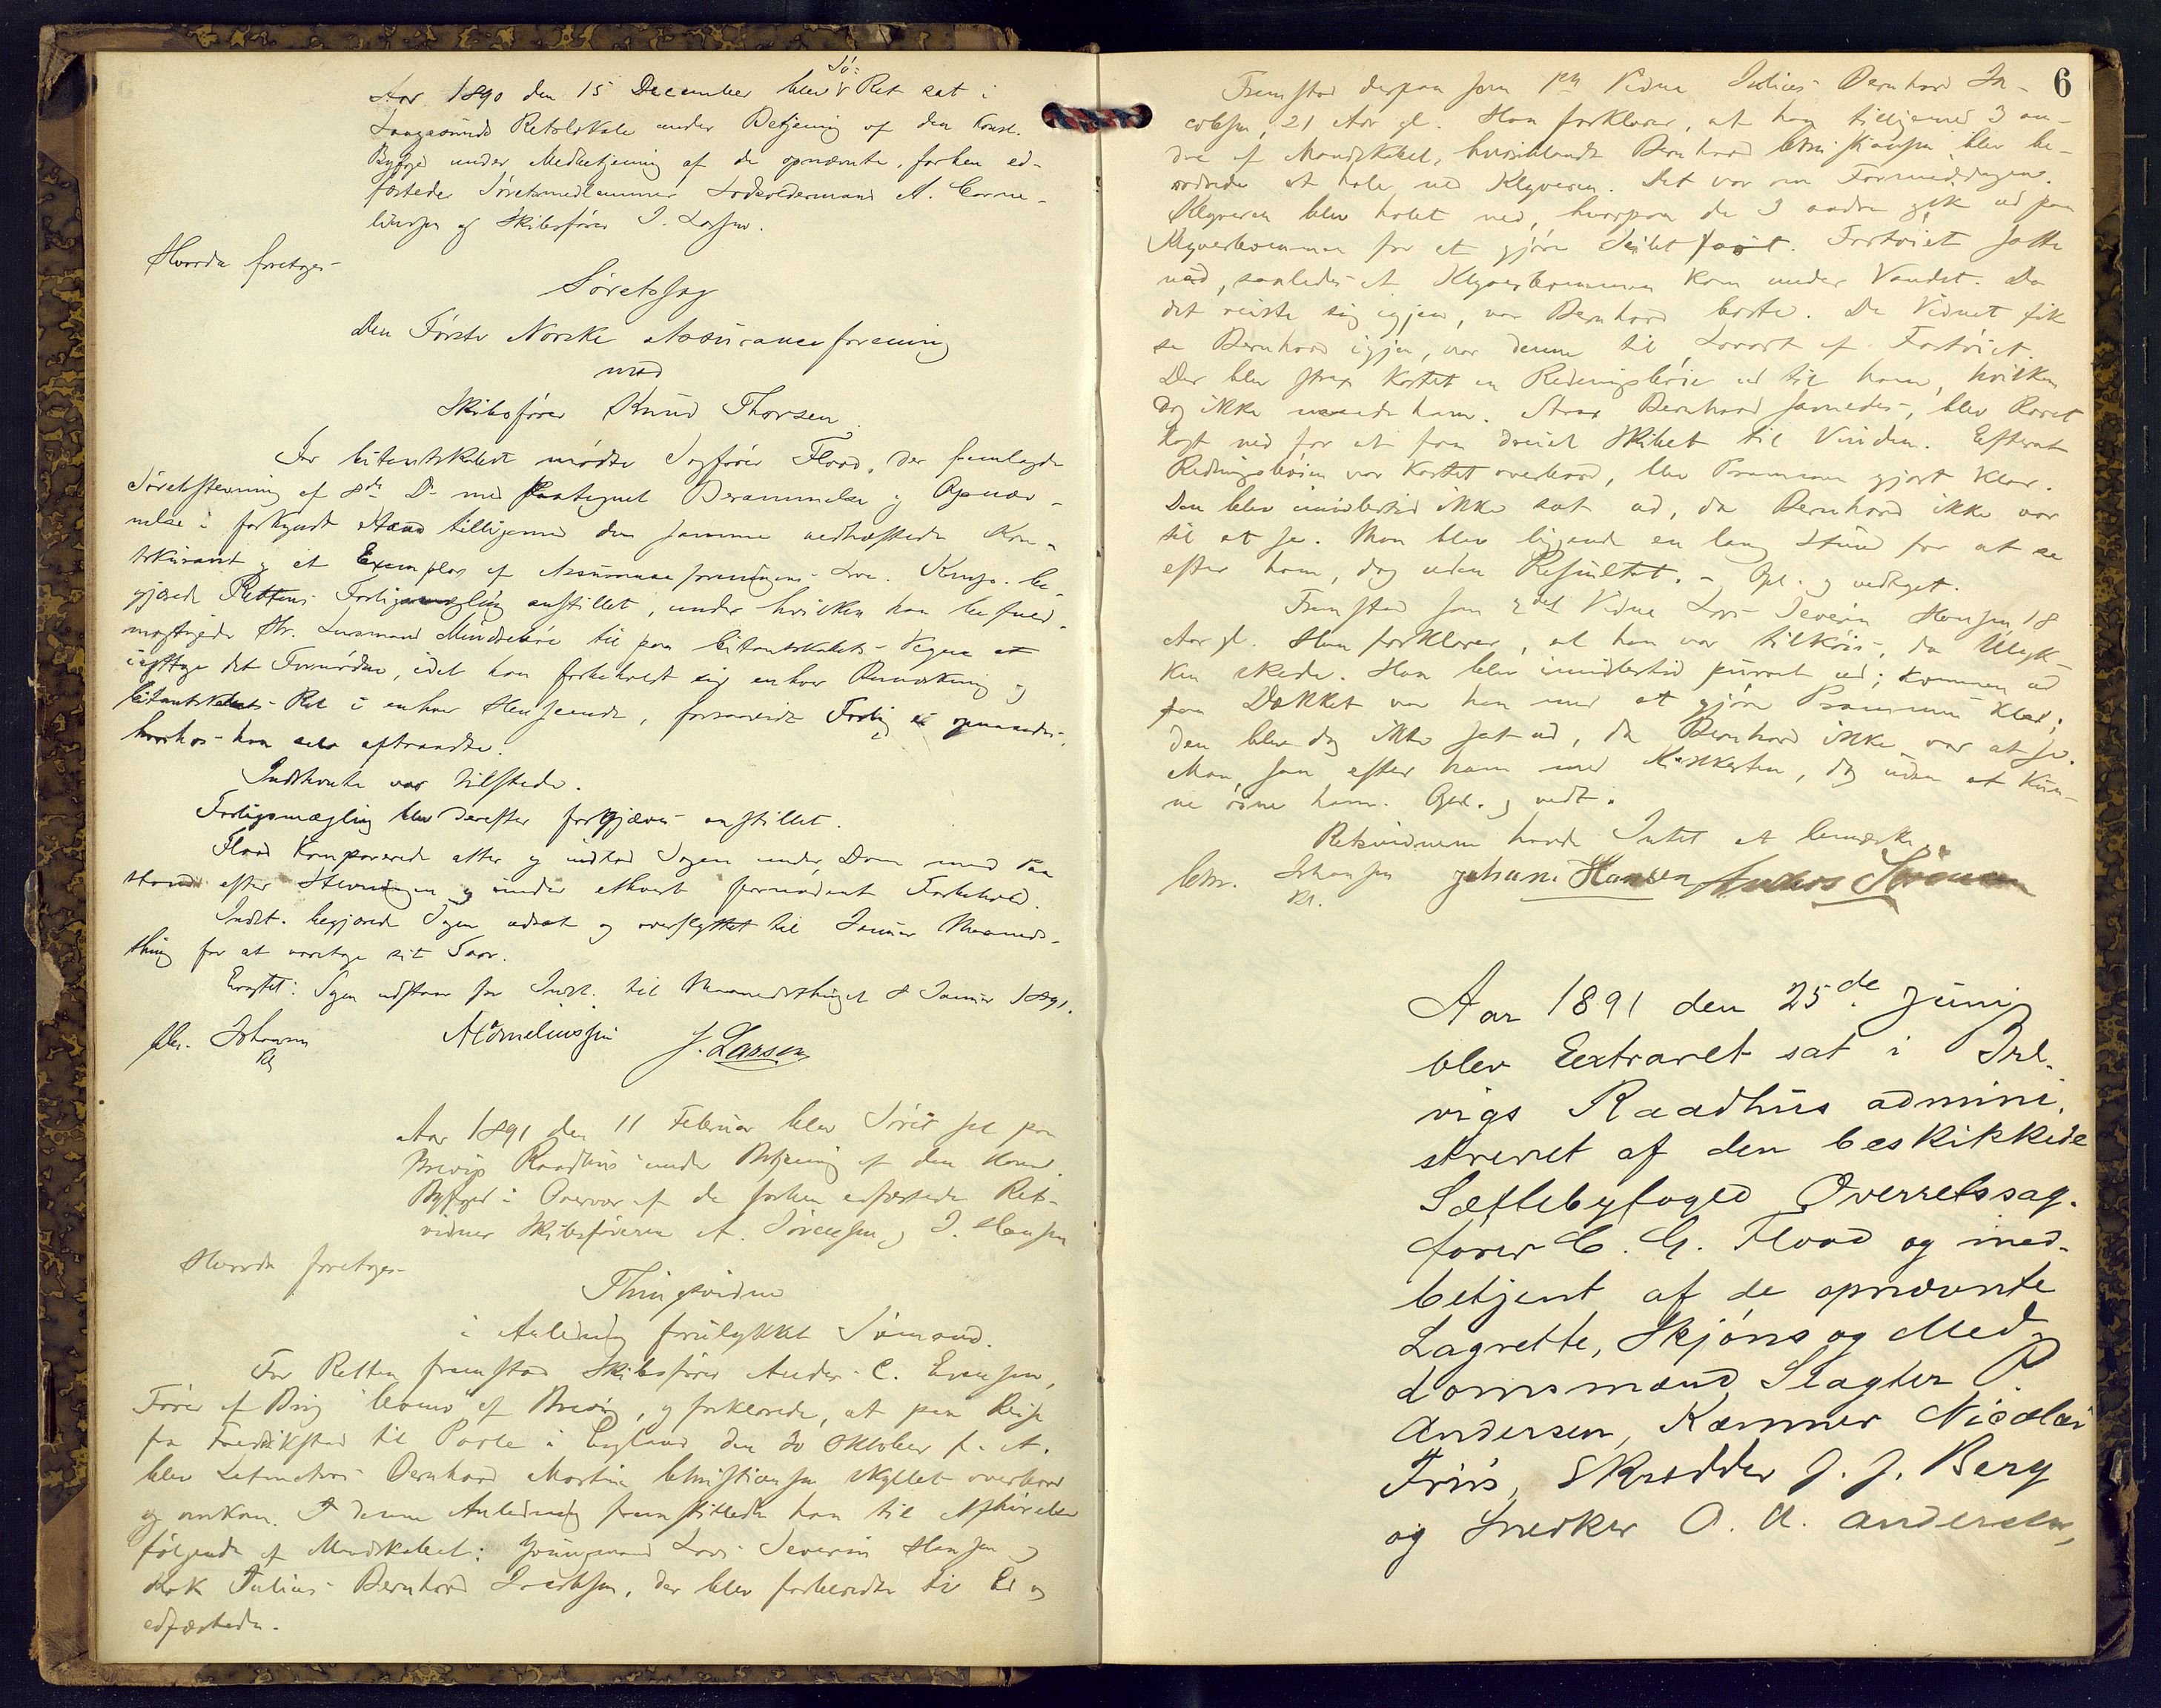 Aar 1890 den 15 December blev Sö- Ret sat i
Langesunds Retslokale under Betjening af den Konst.
Byfoged under Medbetjening af de opnævnte, forhen ed-
fæstede Söretsmedlemmer Lodsoldermand A. Corne-
liussen og Skibsförer J. Lassen.
Hvorda foretoges
Söretssag
Den Förste Norske Assuranceforening
mod
Skibsförer Knud Thorsen.
For Citantskabet mödte Sagförer Flood, der fremlagde
Söretsstevning af 8de Ds med paategnet Berammelse og Opnæv-
nelse i forkyndt Stand tilligemed den samme vedhæftede Kon-
tokurant og et Exemplar af Assuranceforeningens Love. Komp. be-
gjærede Rettens Forligsmægling anstillet, under hvilken han befuld-
mægtigede Hr. Lensmand til paa Citantskabets Vegne at
iagttage det Fornödne, idet han forbeholdt sig enhver Bemærkning og
Citantskabets Ret i enhver Henseende, forsaavidt Forlig ei opnaaedes,
hvorhos han selv aftraadte.
Indstevnte var tilstede.
Forligsmægling blev derefter forgjæves anstillet.
Flood Komparerede atter og indlod Sagen under Dom med Paa
stand efter Stevningen og under ethvert fornödent Forbehold.
Indst. begjærede Sagen udsat og overflyttet til Januar Maaneds-
thing for at varetage sit Tarv.
Eragtet: Sagen udstaar for Indst. til Maanedsthinget 8 Januar 1891.
Chr. Johansen A Corneliussen J. Lassen
Kst.
Aar 1891 den 11 Februar blev Söret sat paa
Brevigs Raadhus under Betjening af den Konst.
Byfoged i Overvær af de forhen edfæstede Rets-
vidner Skibsförerne A. Sörensen og J. Hansen
Hvorda foretoges
Thingsvidne
i Anledning forulykket Sömand.
For Retten fremstod Skibsförer Anders C. Evensen,
Förer af Brig af Brevig, og forklarede, at paa Reise
fra Fredrikstad til Poole i England den 30 Oktober f. A.
blev Letmatros Bernhard Martin Christiansen skyllet overbord
og omkom. I denne Anledning fremstillede han til Afhörelse
fölgende af Mandskabet: Jungmand Lars Severin Hansen og
Kok Julius Bernhard Jacobsen, der blev forberedte til Ed og
edfæstede.
6
Fremstod derpaa som 1ste Vidne Julius Bernhard Ja-
cobsen, 21 Aar gl. Han forklarer, at han tilligemed 3 an-
dre af Mandskabet, hvoriblandt Bernhard Christiansen blev be-
ordrede at hale ned Klyveren. Det var om Formiddagen.
Klyveren blev halet ned, hvorpaa de 3 andre gik ud paa
Klyverbommen for at gjöre Seilet fast. Fartöiet satte
ned, saaledes at Klyverbommen kom under Vandet. Da
det reiste sig igjen, var Bernhard borte. Da Vidnet fik
se Bernhard igjen, var denne til Luvart af Fartöiet.
Der blev strax kastet en Redningsböie ud til ham, hvilken
dog ikke naaede ham. Strax Bernhard savnedes, blev Roret
lagt ned for at faa dreiet Skibet til Vinden. Efterat
Redningsböien var kastet overbord, blev Prammen gjort klar.
Den blev imidlertid ikke sat ud, da Bernhard ikke var
til at se. Man blev liggende en lang Stund for at se
efter ham, dog uden Resultat. - Opl. og vedtaget.
Fremstod som 2det Vidne Lars Severin Hansen, 18
Aar gl. Han forklarer, at han var tilköis, da Ulyk-
ken skede. Han blev imidlertid purret ud; kommen ud
paa Dækket var han med at gjöre Prammen klar;
den blev dog ikke sat ud, da Bernhard ikke var at se.
Man saa efter ham med Kikkerten, dog uden at kun-
ne öine ham. Opl. og vedt.
Retsvidnerne havde Intet at bemærke.
Chr. Johansen Johann Hansen Anders Sörensen
Kst.
Aar 1891 den 25de Juni
blev Extraret sat i Bre-
vigs Raadhus admini-
streret af den beskikkede
Sættebyfoged Overretssag-
förer C. G. Flood og med-
betjent af de opnævnte
Lagrette, Skjöns og Med-
domsmænd Slagter P.
Andersen, Kæmner Nicolai
Friis, Skrædder J. J. Berg
og Snedker O. A. Andersen,